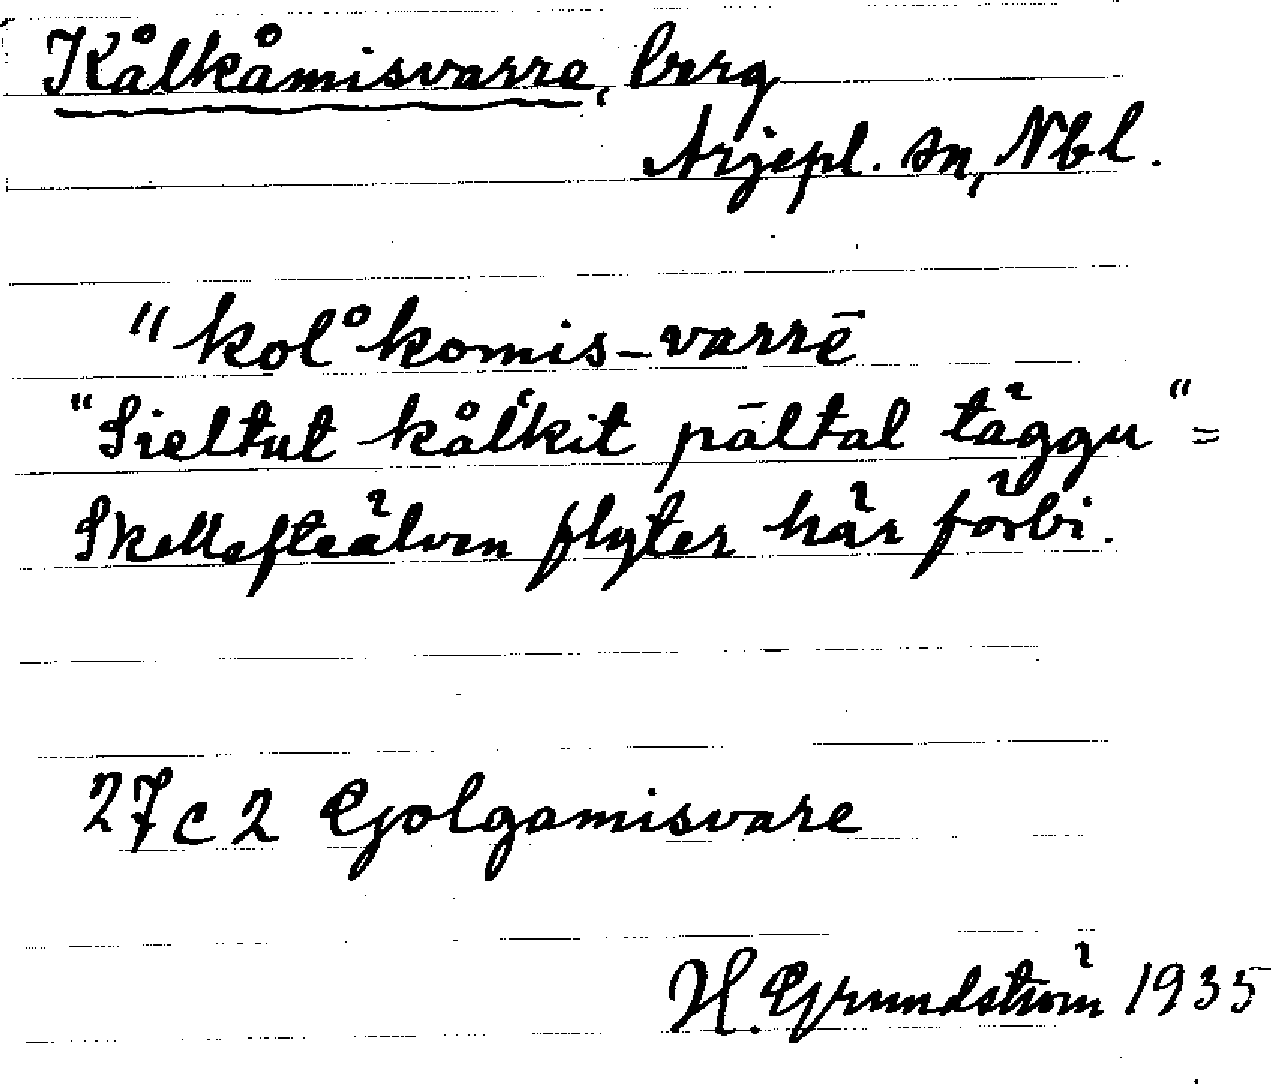 Kålkåmisvarre, berg
Arjepl. sn, Nbl.
"kol°komis-varrē
"Sieltut kål'kit pāltal täggu" =
Skellefteälven flyter här förbi.
27c2 Golgamisvare
H. Grundström 1935